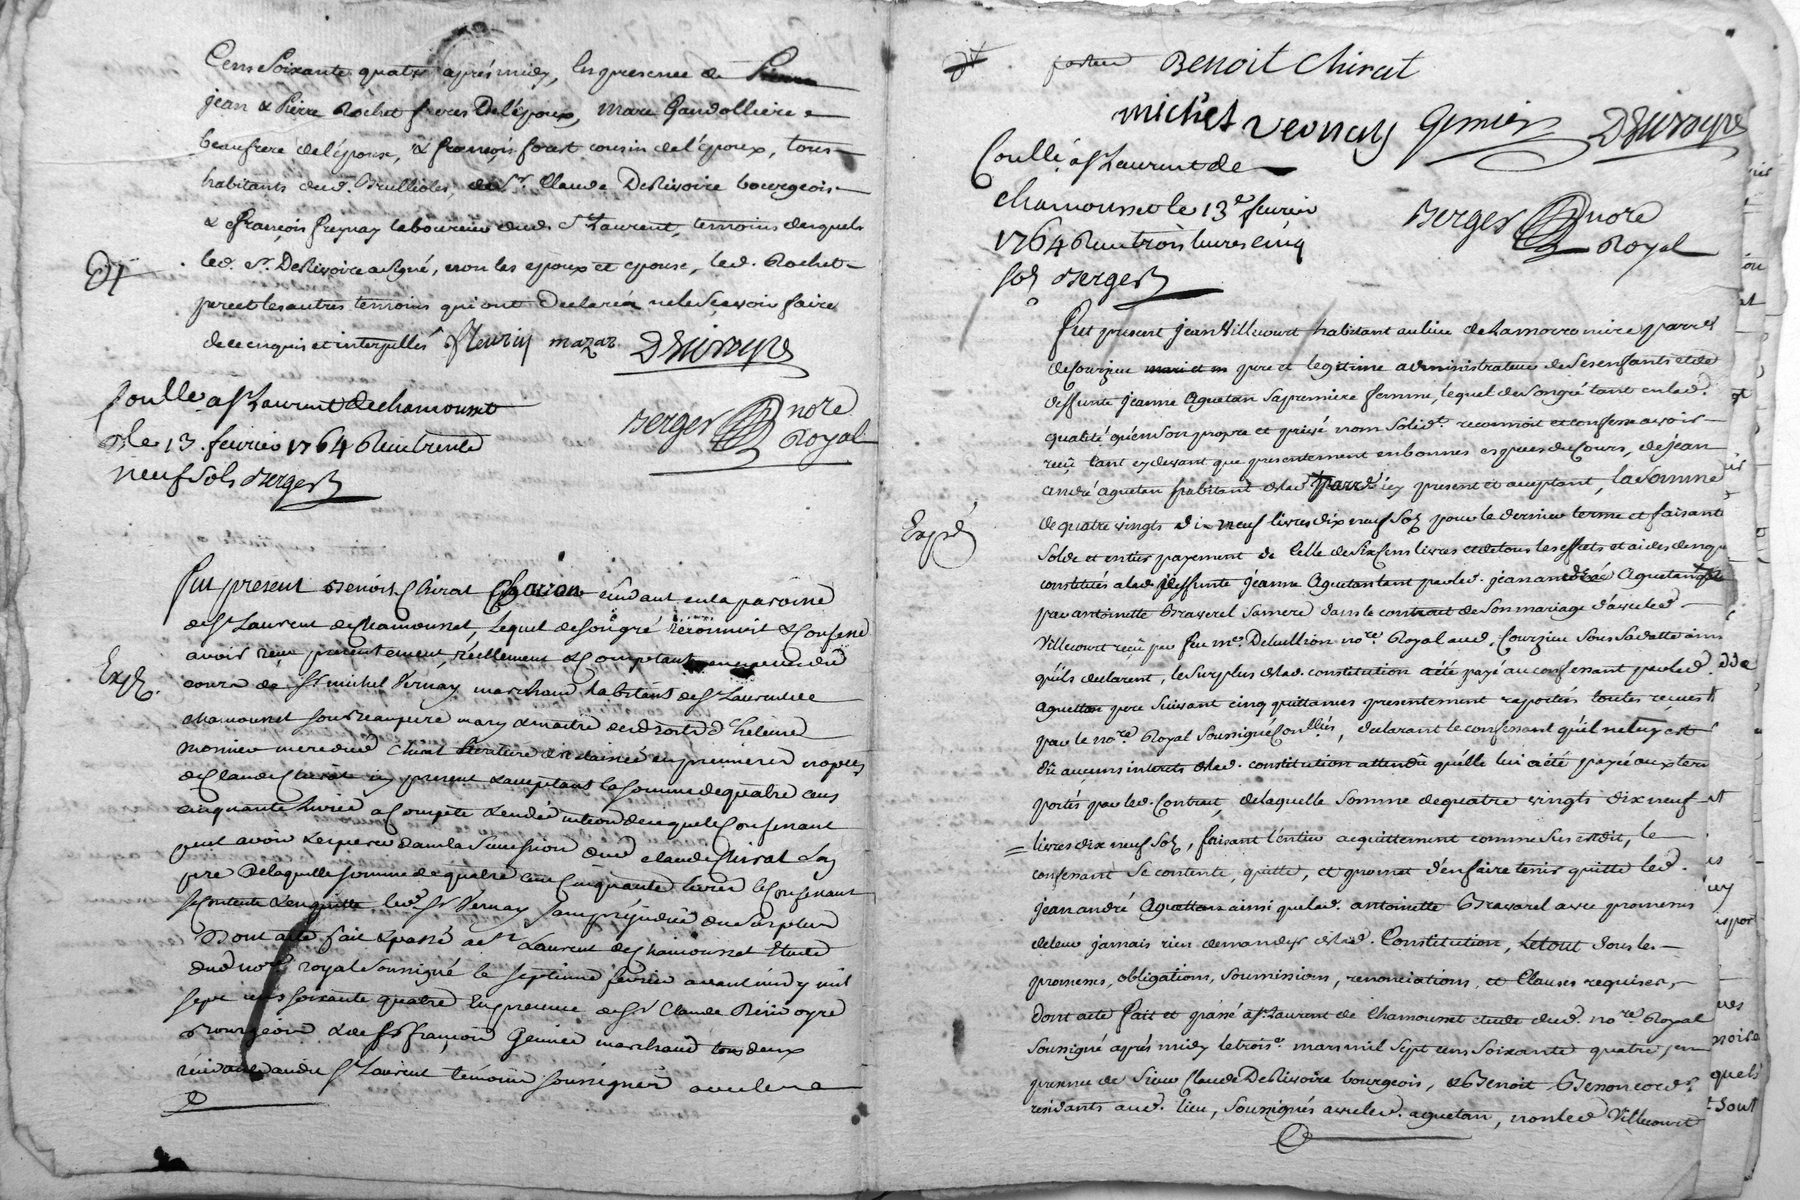 Cens Soixante quatre après midy, En presence de
jean & Pierre Rochet freres De l'époux, Marc Gandolliere
beaufrere de l'épouse, & françois forest cousin de l'époux, tous
habitants dud. Brullioles, de Sr. Claude DeRivoire bourgeois
& françois freynay laboureur dud. St Laurent, temoins desquels
led. Sr. DeRivoire a signé, non les epoux et epouse, led. Rochet
pere et les autres temoins qui ont Declaré ne le Scavoir faire
de ce enquis et interpellés fleurie mazar
Berger nore
Royal
Coullé a St Laurent de chamousset
le 13. fevrier 1764 Reçu trente
neuf Sols Berger
Fut present Benoist Chirat Charon residant en la paroisse
de St Laurent de Chamousset, Lequel de Son gré reconnoit & Confesse
avoir reçu presentement, réellement & Comptant en especes du
Expé.
cours de Sr michel Vernay marchand habitant de St Laurent de
chamousset Son beaupere mary & maitre des droits d'heleine
monier mere dud. Chirat heritiere en premieres nopces
de Claude Chirat icy present & acceptant la Somme de quatre cens
cinquante livres a Compte & en déduction de ce que le Confessant
peut avoir & esperer dans la Succession dud. claude Chirat Son
pere De laquelle Somme de quatre cens Cinquante livres le Confessant
Se contente & en quitte led. Sr Vernay Sans préjudice du Surplus
Dont acte fait & passé a St Laurent de Chamousset Etude
dud. nore royal Soussigné le Septieme fevrier avant midy mil
Sept cens Soixante quatre En presence de Sr Claude Rivoyre
Bourgeois & de Sr françois Genier marchand tous deux
résidans audit St Laurent temoins Soussignés avec les
Benoit Chirat
michel vernay Genier
Coullé a St Laurent de
chamousset le 13e fevrier
1764 Reçu trois livres cinq
Sols Berger
Berger nore
Royal
Fut present jean Villecourt habitant au lieu de Lamorroniere parr.
de Courzieu pere et legitime administrateur de Ses enfants et de
deffunte jeanne Aguetan Sa premiere femme, lequel de Son gré tant en lad.
qualité qu'en Son propre et privé nom Solidt. reconnoit et confesse avoir
reçu tant cy devant que presentement en bonnes especes de Cours, de jean
andré aguetan habitant de lad. parre. icy present et acceptant, la Somme
Expé
de quatre vingts dix neuf livres dix neuf Sols pour le dernier terme et faisant
Solde et entier payement de Celle de Six Cens livres et de tous les effects et aides
constitués a lad. deffunte jeanne Aguetan tant par led. jean andré Aguetan
par antoinette Bravarel Sa mere dans le contract de Son mariage d'avec led.
Villecourt reçu par feu me. Delullion nore. Royal aud. Courzieu Sous Sa datte ainsi
qu'ils declarent, le Surplus de lad. constitution a été payé au confessant par led.
Aguettan pere Suivant cinq quittances presentement raportés toutes reçues
par le nore. Royal Soussigné Coullées, declarant le confessant qu'il ne luy est
dû aucuns interets de lad. constitution attendû qu'elle lui a été payée aux termes
portés par led. Contrat, de laquelle Somme de quatre vingts dix neuf
livres dix neuf Sols, faisant l'entier acquittement comme Sus est dit, le
confessant Se contente, quitte, et promet d'en faire tenir quitte led.
jean andré Aguettan ainsi que lad. antoinette Bravarel avec promesses
de leur jamais rien demander de lad. Constitution, Le tout Sous les
promesses, obligations, Soumissions, renonciations, et Clauses requises,
dont acte fait et passé a St Laurent de Chamousset etude dud. nore. Royal
Soussigné après midy le troise. mars mil Sept cens Soixante quatre, en
presence de Sieur Claude DeRivoire bourgeois, & Benoit Besson
residants aud. lieu, Soussignés avec led. aguetan, non led. Villecourt